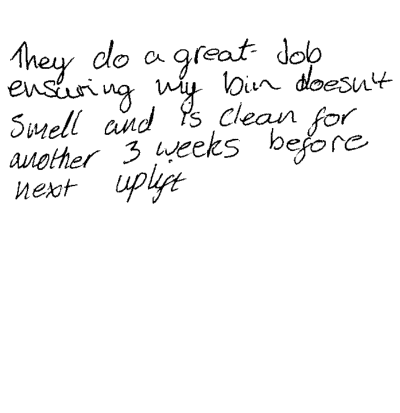 They do a great Job
ensuring my bin doesn't
smell and is clean for
another 3 weeks before
next uplift